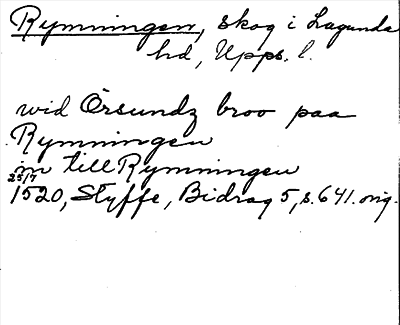 Rymningen, skog i Lagunda
hd, Upps. l.
wid Örsundz broo paa
Rymningen
in till Rymningen
25/7
1520, Styffe, Bidrag 5, s. 641. orig.